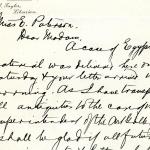 Taylor,
Librarian
Miss E. Paterson.
Dear Madam,
A case of Egyp
material was delivered here on
Saturday & your letter arrived
morning. As I have transf
all antiquities to the con
Superintendent of the
shall be glad if all future